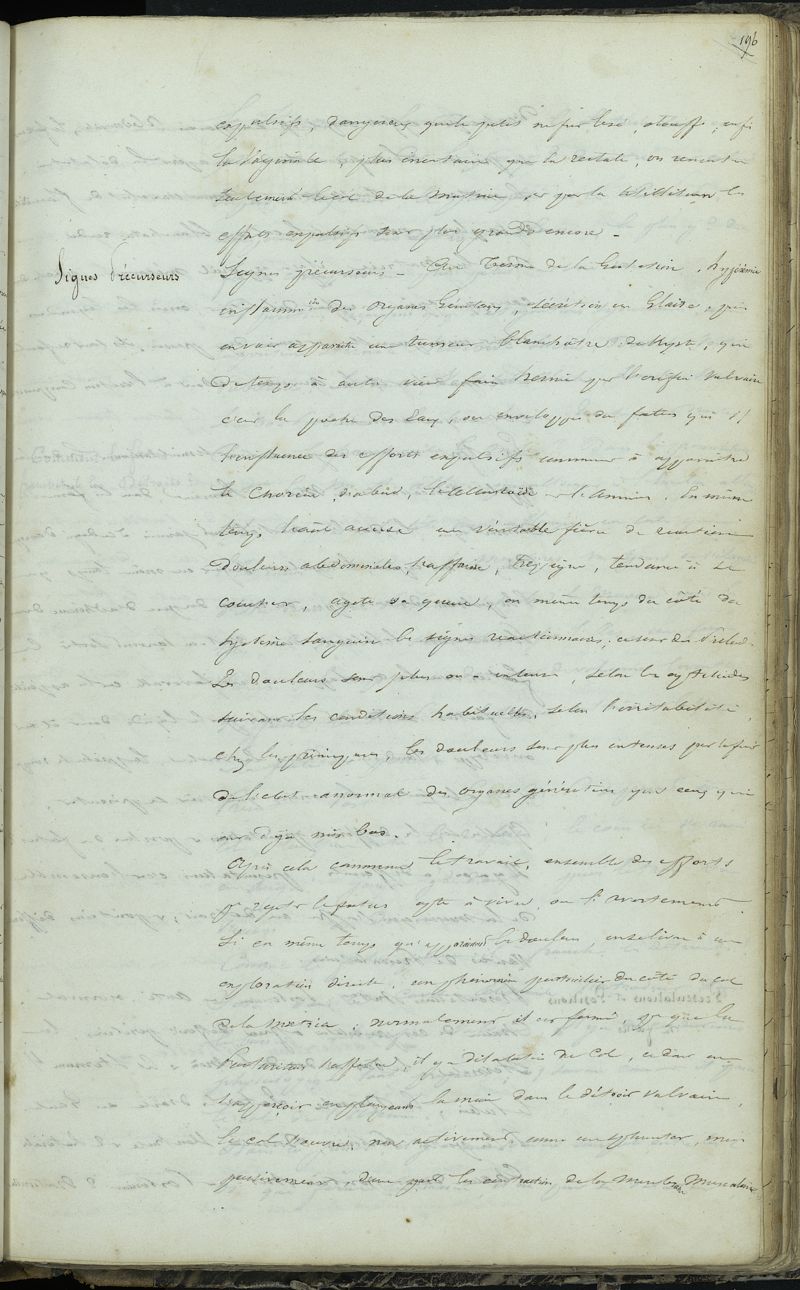 196
expulsifs, dangereux que le petit ne fut lésé, étouffé, enfin
la vaginale, plus incertaine que la rectale, on rencontre
seulement le col de la matrice, et par la titillation les
efforts expulsifs sont plus grands encore _
Signes Précurseurs
Signes précurseurs _ Au terme de la Gestation, hyperémie
inflamm.on des organes Génitaux, sécrétion un Glaire, puis
on voit apparaître une tumeur blanchâtre, de Kyste, qui
de temps à autre vient faire hernie par l'orifice vulvaire
c'est la poche des Eaux, ou enveloppe du fœtus qui s/
l'influence des efforts expulsifs commence à apparaître
le Chorion d'abord, l'allantoïde et l'amnios. En même
temps l'animal accuse une véritable fièvre de réaction
douleurs abdominales, trépigne, tendance à se
coucher, agite sa queue, en même temps du côté du
système sanguin les signes réactionnaires, ce sont des Prélud.
Les douleurs sont plus ou - intenses, selon les aptitudes
suivant les conditions habituelles, selon l'irritabilité,
chez les primipares, les douleurs sont plus intenses par le fait
de l'état anormal des organes génératein que ceux qui
ont déjà mis bas.
Après cela commence le travail, ensemble des efforts
pr rejeter le fœtus apte à vivre, ou l'avortement
Si en même temps qu'apparaissent les douleurs, on se livre à une
exploration directe, un phénomène particulier du côté du col
de la matrice; normalement il est fermé, dès que la
il y a dilatation du col, ce dont on
s'aperçoit en plongeant la main dans le détroit vulvaire,
le col s'ouvre, non activement, comme un sphincter, mais
passivement, dans les contractions de la Membrane Musculaire